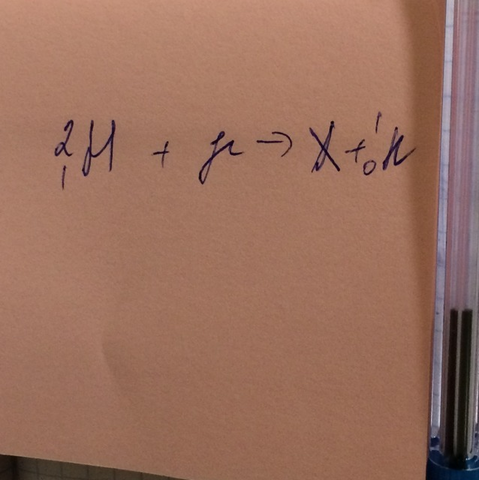 ²₁H + γ → X + ¹₀n